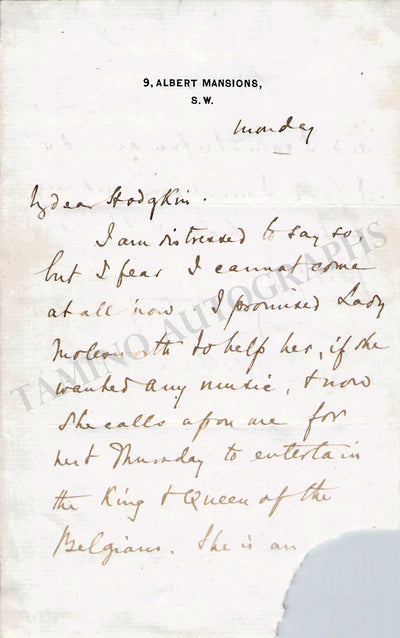 9, ALBERT MANSIONS,
S.W.
Monday
My dear Hodgkin.
I am distressed to say so,
but I fear I cannot come
at all now. I promised Lady
Molesworth to help her, if she
wanted any music, & now
she calls upon me for
next Thursday to entertain
the King & Queen of the
Belgians. She is an
TAMINO AUTOGRAPHS